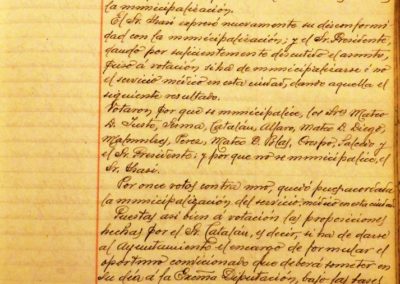 la municipalización.
El Sr. Irasi expresó nuevamente su disconformi
dad con la municipalización; y el Sr. Presidente,
dando por suficientemente discutido el asunto,
puso á votación si ha de municipalizarse ó no
el servicio médico en esta ciudad, dando aquella el
siguiente resultado.
Votaron, por que se municipalice, los Sres Mateo
D. Justo, Catalán, Alfaro, Mateo D. Diego,
Perez, Mateo D. Blas, Crespo, Salcedo y
el Sr. Presidente; y por que no se municipalice, el
Sr. Irasi.
Por once votos contra uno, quedó pues acordada
la municipalización del servicio médico en esta ciudad.
Puestas asi bien á votación las proposiciones
hechas por el Sr. Catalán, es decir, si ha de darse
al Ayuntamiento el encargo de formular el
oportuno condicionado que deberá someter en
su dia á la Excma Diputación, bajo las bases